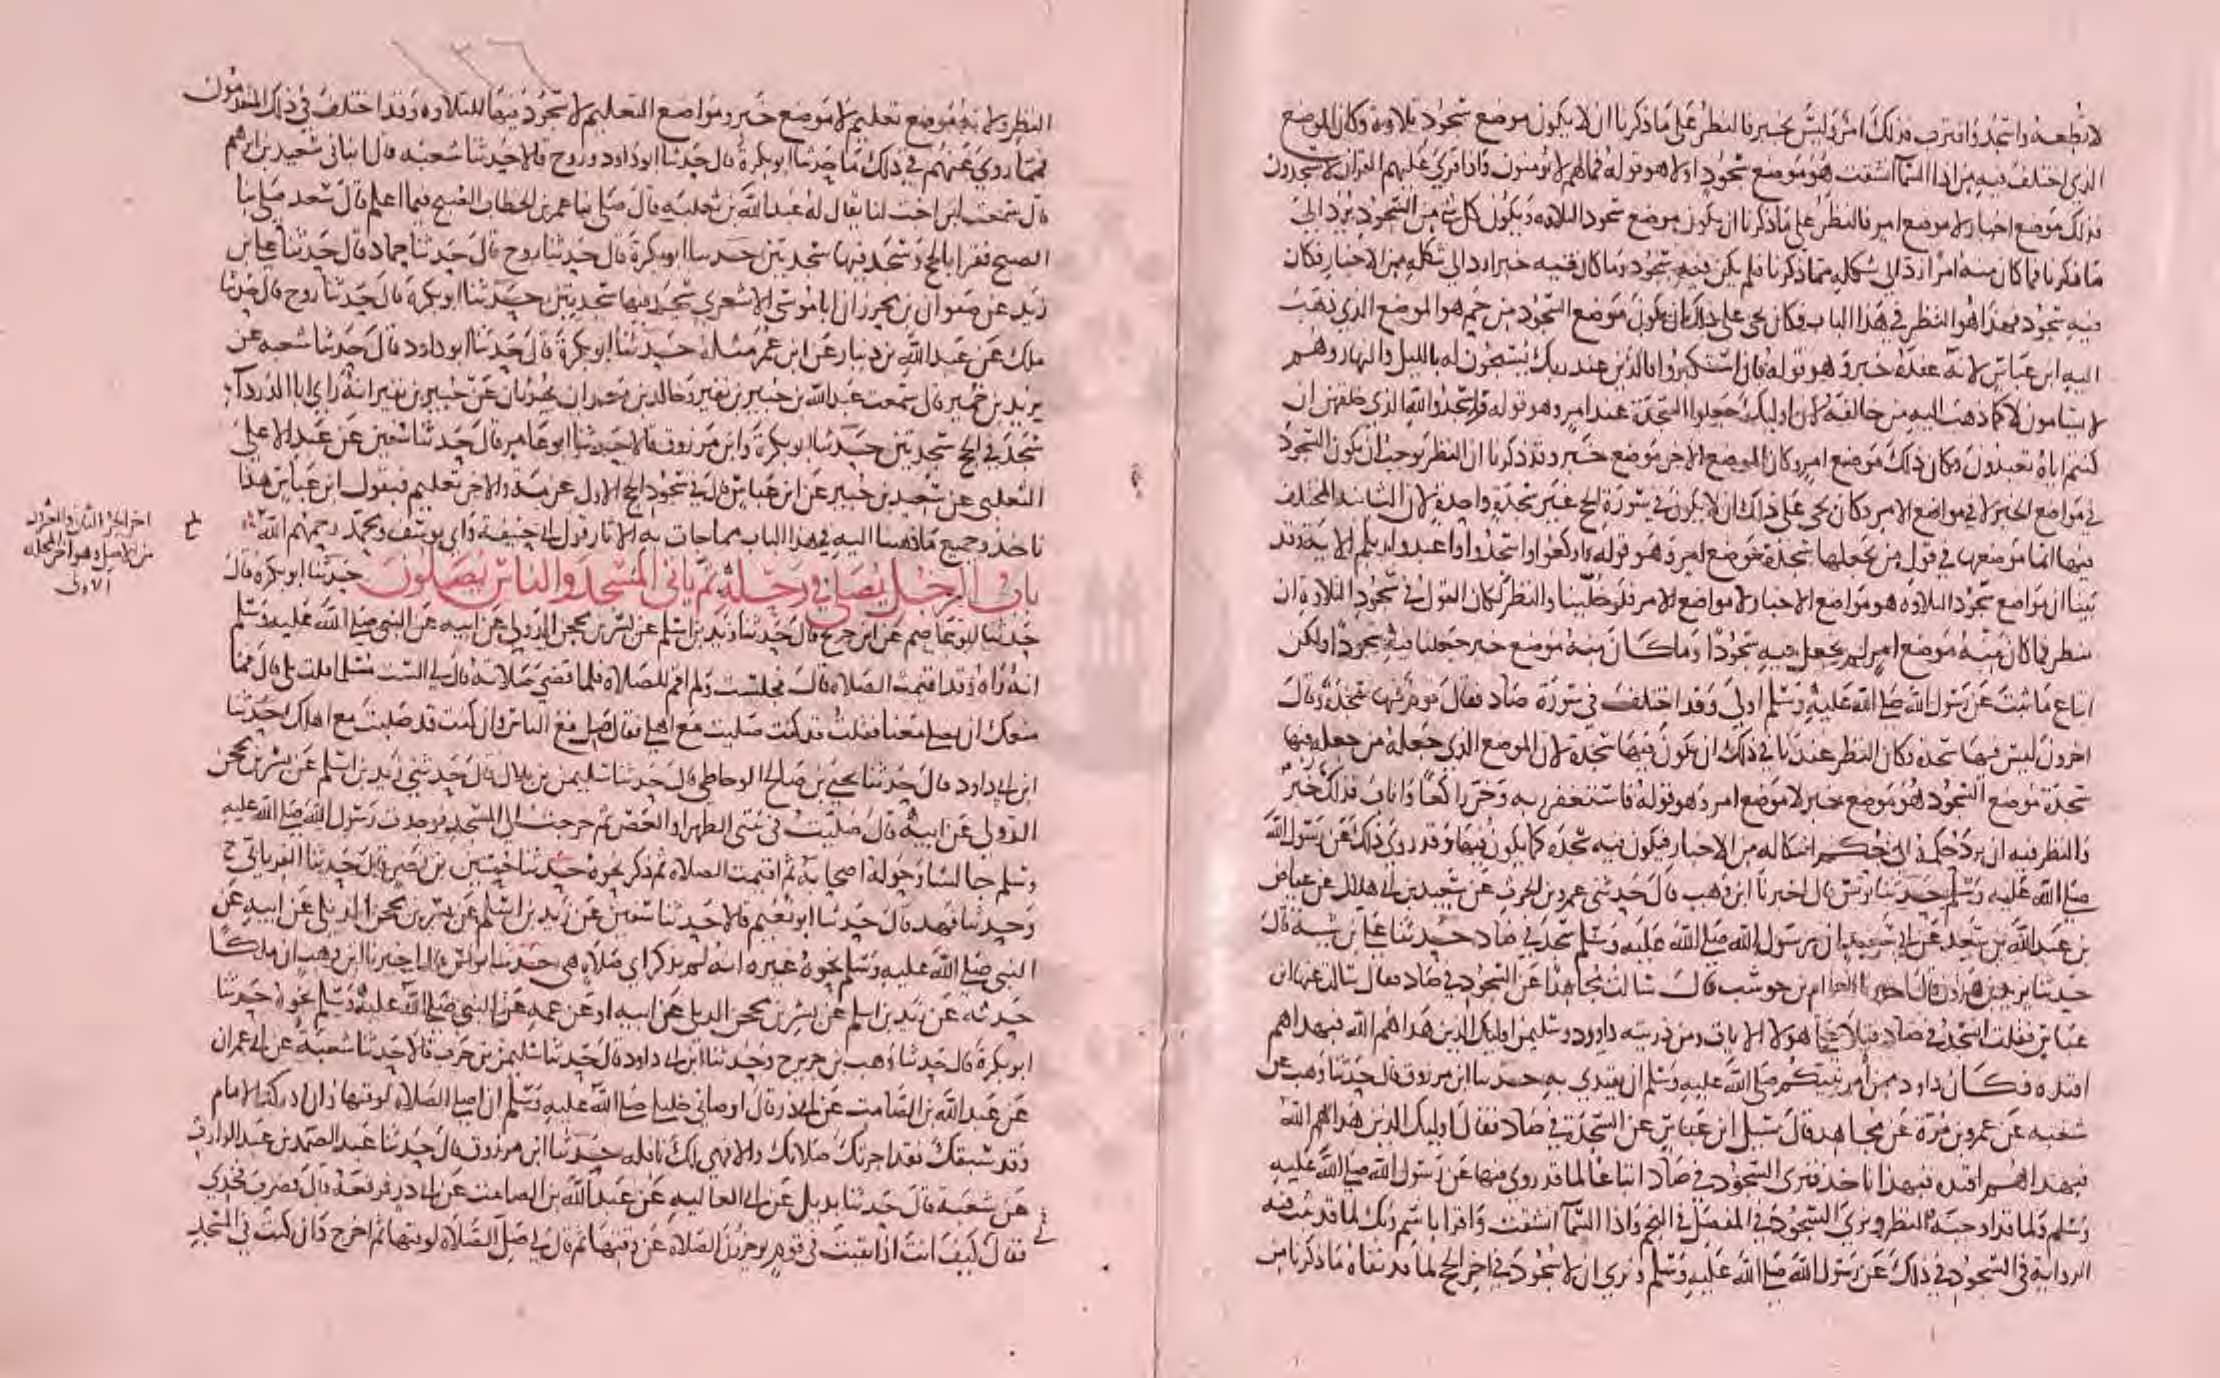 لا تطعه واسجد واقترب فذلك امر وليس بخبر فالنظر على ما ذكرنا ان لا يكون موضع سجود تلاوة وكان الموضع
الذي اختلف فيه من اذا السماء انشقت هو موضع سجود اولا هو قوله فما لهم لا يومنون واذا قري عليهم القران لا يسجدون
فذلك موضع اخبار لا موضع امر فالنظر على ما ذكرنا ان يكون موضع سجود التلاوة ويكون كل شي من السجود يرد الى
ما ذكرنا فما كان منه امرا رد الى شكله مما ذكرنا فلم يكن فيه سجود وما كان فيه خبرا رد الى شكله من الاخبار فكان
فيه سجود فهذا هو النظر في هذا الباب وكان يجي على ذلك ان يكون موضع السجود من حم هو الموضع الذي ذهب
اليه ابن عباس لانه عنده خبر وهو قوله فان استكبروا فالذين عند ربك يسبحون له بالليل والنهار وهم
لا يسامون لا كما ذهب اليه من خالفه لان اوليك جعلوا السجدة عند امر وهو قوله واسجدوا لله الذي خلقهن ان
كنتم اياه تعبدون وكان ذلك موضع امر وكان الموضع الاخر موضع خبر وقد ذكرنا ان النظر يوجب ان يكون السجود
في مواضع الخبر لا في مواضع الامر وكان يجي على ذلك ان لا يكون في سورة الحج غير سجدة واحدة لان الثانية المختلف
فيها انما موضعها في قول من يجعلها سجدة موضع امر وهو قوله اركعوا واسجدوا واعبدوا ربكم الاية وقد
بينا ان مواضع سجود التلاوة هو مواضع الاخبار لا مواضع الامر فلو خلينا والنظر لكان القول في سجود التلاوة ان
ينظر فما كان منه موضع امر لم يجعل فيه سجودا وما كان منه موضع خبر جعلنا فيه سجودا ولكن
اتباع ما ثبت عن رسول الله صلى الله عليه وسلم اولى وقد اختلف في سورة صاد فقال قوم فيها سجدة وقال
اخرون ليس فيها سجدة وكان النظر عندنا في ذلك ان يكون فيها سجدة لان الموضع الذي جعله من جعله فيها
سجدة موضع السجود هو موضع خبر لا موضع امر وهو قوله فاستغفر ربه وخر راكعا واناب فذلك خبر
فالنظر فيه ان يرد حكمه الى حكم اشكاله من الاخبار فيكون فيه سجدة كما يكون فيها وقد روي ذلك عن رسول الله
صلى الله عليه وسلم حدثنا يونس قال اخبرنا ابن وهب قال حدثني عمرو بن الحرث عن سعيد بن ابي هلال عن عياض
بن عبد الله بن سعد عن ابي سعيد ان رسول الله صلى الله عليه وسلم سجد في صاد حدثنا علي بن شيبة قال
حدثنا يزيد بن هارون قال اخبرنا العوام بن حوشب قال سالت مجاهدا عن السجود في صاد فقال سالت عنها ابن
عباس فقلت اسجد في صاد فتلا علي هولا الايات ومن ذريته داود وسليمن اوليك الذين هداهم الله فبهداهم
اقتده فكان داود ممن امر نبيكم صلى الله عليه وسلم ان يقتدي به حدثنا ابن مرزوق قال حدثنا وهب عن
شعبه عن عمرو بن مرة عن مجاهد قال سيل ابن عباس عن السجدة في صاد فقال اوليك الذين هداهم الله
فبهداهم اقتده فبهذا ناخذ فنرى السجود في صاد اتباعا لما قد روي فيها عن رسول الله صلى الله عليه
وسلم ولما قد اوجبه النظر ونرى السجود في المفصل في النجم واذا السماء انشقت واقرا باسم ربك لما قد ثبت فيه
الرواية في السجود في ذلك عن رسول الله صلى الله عليه وسلم ونرى ان لا سجود في اخر الحج لما قد نفاه ما ذكرنا من
١٣٦
النظر ولانه موضع تعليم لا موضع خبر ومواضع التعليم لا سجود فيها للتلاوة وقد اختلف في ذلك المتقدمون
فمما روي عنهم في ذلك ما حدثنا ابو بكرة قال حدثنا ابو داود وروح قالا حدثنا شعبه قال انباني سعيد بن ابرهيم
قال سمعت ابن اخت لنا يقال له عبد الله بن ثعلبه قال صلى بنا عمر بن الخطاب الصبح فيما اعلم قال سعد صلى بنا
الصبح فقرا بالحج وسجد فيها سجدتين حدثنا ابو بكرة قال حدثنا روح قال حدثنا حماد قال حدثنا علي بن
زيد عن صفوان بن محرز ان ابا موسى الاشعري سجد فيها سجدتين حدثنا ابو بكرة قال حدثنا روح قال حدثنا
ملك عن عبد الله بن دينار عن ابن عمر مثله حدثنا ابو بكرة قال حدثنا ابو داود قال حدثنا شعبه عن
يزيد بن خمير قال سمعت عبد الله بن جبير بن نفير وخالد بن معدان يحدثان عن جبير بن نفير انه راى ابا الدرداء
سجد في الحج سجدتين حدثنا ابو بكرة وابن مرزوق قالا حدثنا ابو عامر قال حدثنا سفين عن عبد الاعلى
الثعلبي عن سعيد بن جبير عن ابن عباس قال في سجود الحج الاول عزمة والاخر تعليم فبقول ابن عباس هذا
ناخذ وجميع ما ذهبنا اليه في هذا الباب مما جات به الاثار قول ابي حنيفة وابي يوسف ومحمد رحمهم الله
باب الرجل يصلي في رحله ثم ياتي المسجد والناس يصلون حدثنا ابو بكرة قال
حدثنا ابو عاصم عن ابن جريج قال حدثنا زيد بن اسلم عن بسر بن محجن الدولي عن ابيه عن النبي صلى الله عليه وسلم
انه راه وقد اقيمت الصلاة قال فجلست ولم اقم للصلاة فلما قضى صلاته قال لي الست مسلما قلت بلى قال فما
منعك ان تصلي معنا فقلت قد كنت صليت مع اهلي فقال صل مع الناس وان كنت قد صليت مع اهلك حدثنا
ابن ابي داود قال حدثنا يحيى بن صالح الوحاظي قال حدثنا سليمن بن بلال قال حدثني زيد بن اسلم عن بسر بن محجن
الدولي عن ابيه قال صليت في بيتي الظهر او العصر ثم خرجت الى المسجد فوجدت رسول الله صلى الله عليه
وسلم جالسا وحوله اصحابه ثم اقيمت الصلاة ثم ذكر نحوه حدثنا حسين بن نصر قال حدثنا الفريابي ح
وحدثنا فهد قال حدثنا ابو نعيم قالا حدثنا سفين عن زيد بن اسلم عن بسر بن محجن الديلي عن ابيه عن
النبي صلى الله عليه وسلم نحوه غير انه لم يذكر اي صلاة هي حدثنا يونس قال اخبرنا ابن وهب ان ملكا
حدثه عن زيد بن اسلم عن بسر بن محجن الديلي عن ابيه او عن عمه عن النبي صلى الله عليه وسلم نحوه حدثنا
ابو بكرة قال حدثنا وهب بن جرير ح وحدثنا ابن ابي داود قال حدثنا سليمن بن حرب قالا حدثنا شعبة عن ابي عمران
عن عبد الله بن الصامت عن ابي ذر قال اوصاني خليلي صلى الله عليه وسلم ان اصلي الصلاة لوقتها وان ادركت الامام
وقد سبقك فقد اجزتك صلاتك والا فهي لك نافلة حدثنا ابن مرزوق قال حدثنا عبد الصمد بن عبد الوارث
عن شعبة قال حدثنا بديل عن ابي العاليه عن عبد الله بن الصامت عن ابي ذر فرفعه قال فضرب فخذي
فقال كيف انت اذا بقيت في قوم يوخرون الصلاة عن وقتها ثم قال لي صل الصلاة لوقتها ثم اخرج وان كنت في المسجد
اخر الجزء الثاني والعشرون
من الاصل وهو اخر المجلد
الاولى